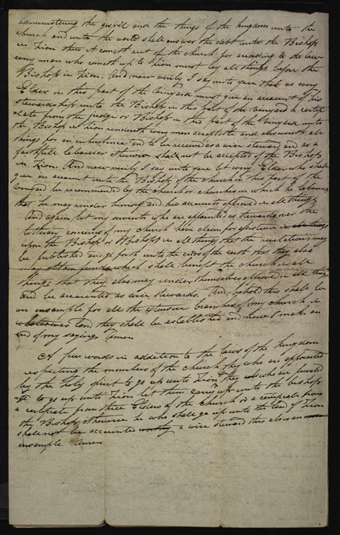 administering the gospel and the things of the kingdom unto the
church and unto the world shall answer the debt unto the Bishop
in Zion thus it cometh out of the church for according to the law
every man who cometh up to Zion must lay all things before the
Bishop in Zion And now verily I say unto you that as every
Elder in this part of the vineyard must give an account of his
stewardship unto the Bishop in this part of the vineyard a certifi
cate from the judge or Bishop in this part of the vineyard unto
the Bishop in Zion rendereth every man acceptable and answereth all
things for an inheritance and to be received as a wise steward and as a
faithful labourer otherwise shall not be accepted of the Bishop
in Zion And now verily I say unto you let every Elder who shall
give an account unto the Bishop of the church in this part of the
vineyard be recommended by the church or churches in which he labours
that he may render himself and his accounts approved in all things
And again let my servents who are appointed as stewards over the
literary concerns of my church have claim for assistance
upon the Bishop or Bishops in all things that the revelations may
be published and go forth unto the ends of the earth that they also
may obtain funds which shall benefit the church in all
things that they also may render themselves approved in all things
and be accounted as wise stewards And behold this shall be
an ensample for all the extensive branches of my church in
whatsoever land they shall be established and now I make an
end of my sayings Amen
A few words in addition to the laws of the kingdom
respecting the members of the church they who are appointed
by the Holy spirit to go up unto Zion they who are privileged
to go up unto Zion let them carry up unto the bishop
a certificate from three Elders of the church or a certificate from
the Bishop otherwise he who shall go up unto the land of Zion
shall not be accounted a wise steward this also
ensample Amen